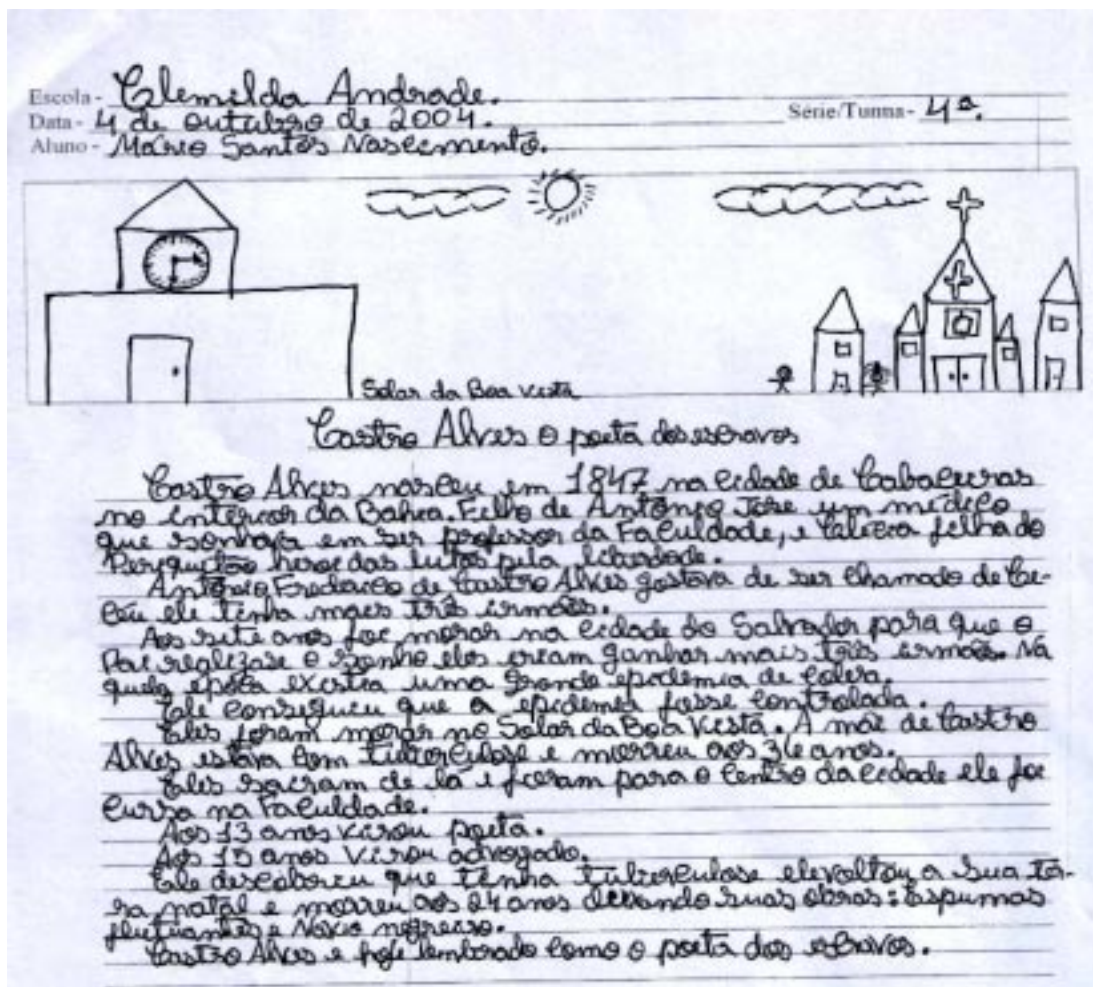 Escola - Clemilda Andrade.
Série/Turma - 4ª.
Data - 4 de outubro de 2004.
Aluno - Mário Santos Nascimento.
Solar da Boa Vista
Castro Alves o poeta dos escravos
Castro Alves nasceu em 1847 na cidade de Cabaceiras
no interior da Bahia. Filho de Antônio José um médico
que sonhava em ser professor da Faculdade, e Clélia filha do
Periquitão heroe das lutas pela liberdade.
Antônio Frederico de Castro Alves gostava de ser chamado de Ce-
céu ele tinha mais três irmãos.
Aos sete anos foi morar na cidade do Salvador para que o
Pai realizase o sonho eles iriam ganhar mais três irmãos. Na
quela época existia uma grande epidemia de colera.
Ele conseguiu que a epidemia fosse controlada.
Eles foram morar no Solar da Boa Vista. A mãe de Castro
Alves estava com tuberculose e morreu aos 36 anos.
Eles sairam de lá e foram para o centro da cidade ele foi
cursa na Faculdade.
Aos 13 anos virou poeta.
Aos anos virou advogado.
Ele descobriu que tinha tuberculose e voltou a sua
natal e morreu aos 24 anos deixando suas obras: Espumas
flutuantes e Navio negreiro.
Castro Alves e hoje lembrado como o poeta dos escravos.